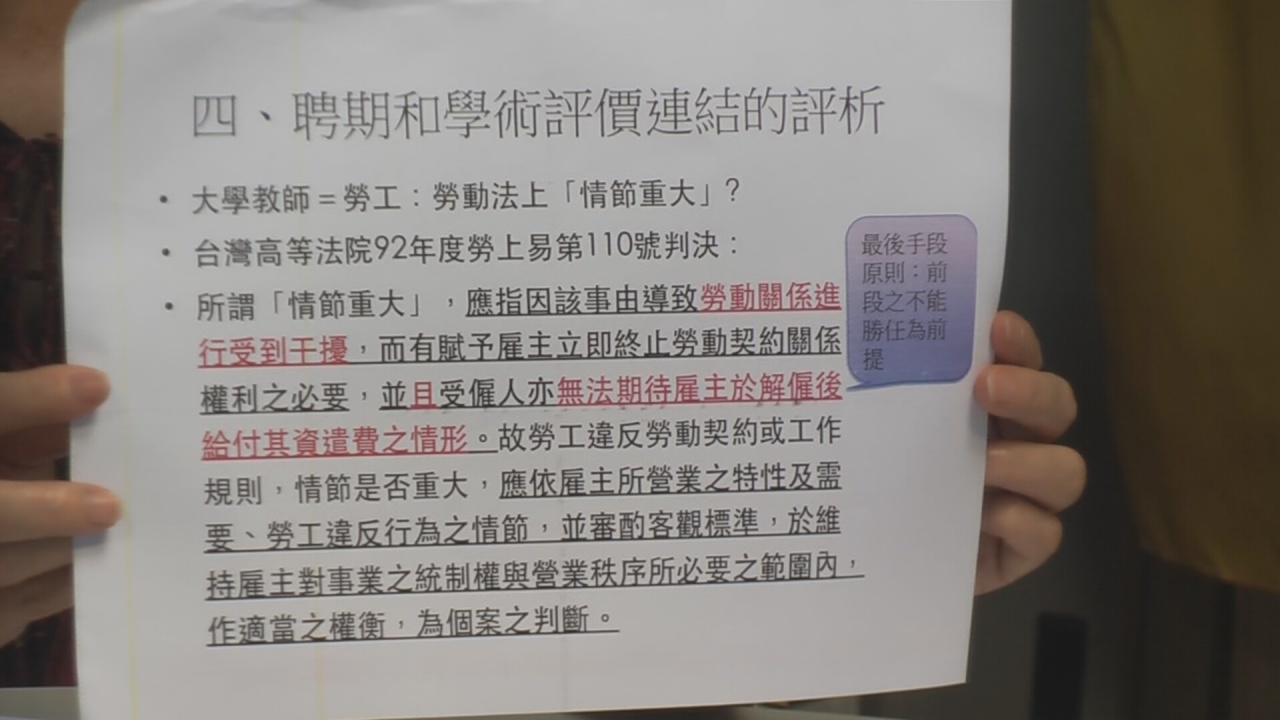 四、聘期和學術評價連結的評析
• 大學教師＝勞工：勞動法上「情節重大」?
• 台灣高等法院92年度勞上易第110號判決：
• 所謂「情節重大」，應指因該事由導致勞動關係進
行受到干擾，而有賦予雇主立即終止勞動契約關係
權利之必要，並且受僱人亦無法期待雇主於解僱後
給付其資遣費之情形。故勞工違反勞動契約或工作
規則，情節是否重大，應依雇主所營業之特性及需
要、勞工違反行為之情節，並審酌客觀標準，於維
持雇主對事業之統制權與營業秩序所必要之範圍內，
作適當之權衡，為個案之判斷。
最後手段
原則：前
段之不能
勝任為前
提